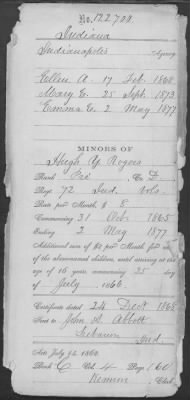 No. 122701
Indiana
Indianapolis Agency
Ellen A. 17 Feb. 1868
Mary E. 25 Sept. 1873
Emma C. 2 May 1877
MINORS OF
Hugh Y. Rogers
Rank Pri Co. D
Regt. 72 Ind. Vols
Rate per Month, $ 8
Commencing 31 Oct. 1865
Ending 2 May 1877
Additional sum of $2 per Month for each
of the abovenamed children, until arriving at the
age of 16 years, commencing 25 day
of July 1866
Certificate dated 24 Dec. 1868
Sent to John A. Abbott
Lebanon
Ind.
Act July 14 1862
Book C Vol. 4 Page 160
Clerk